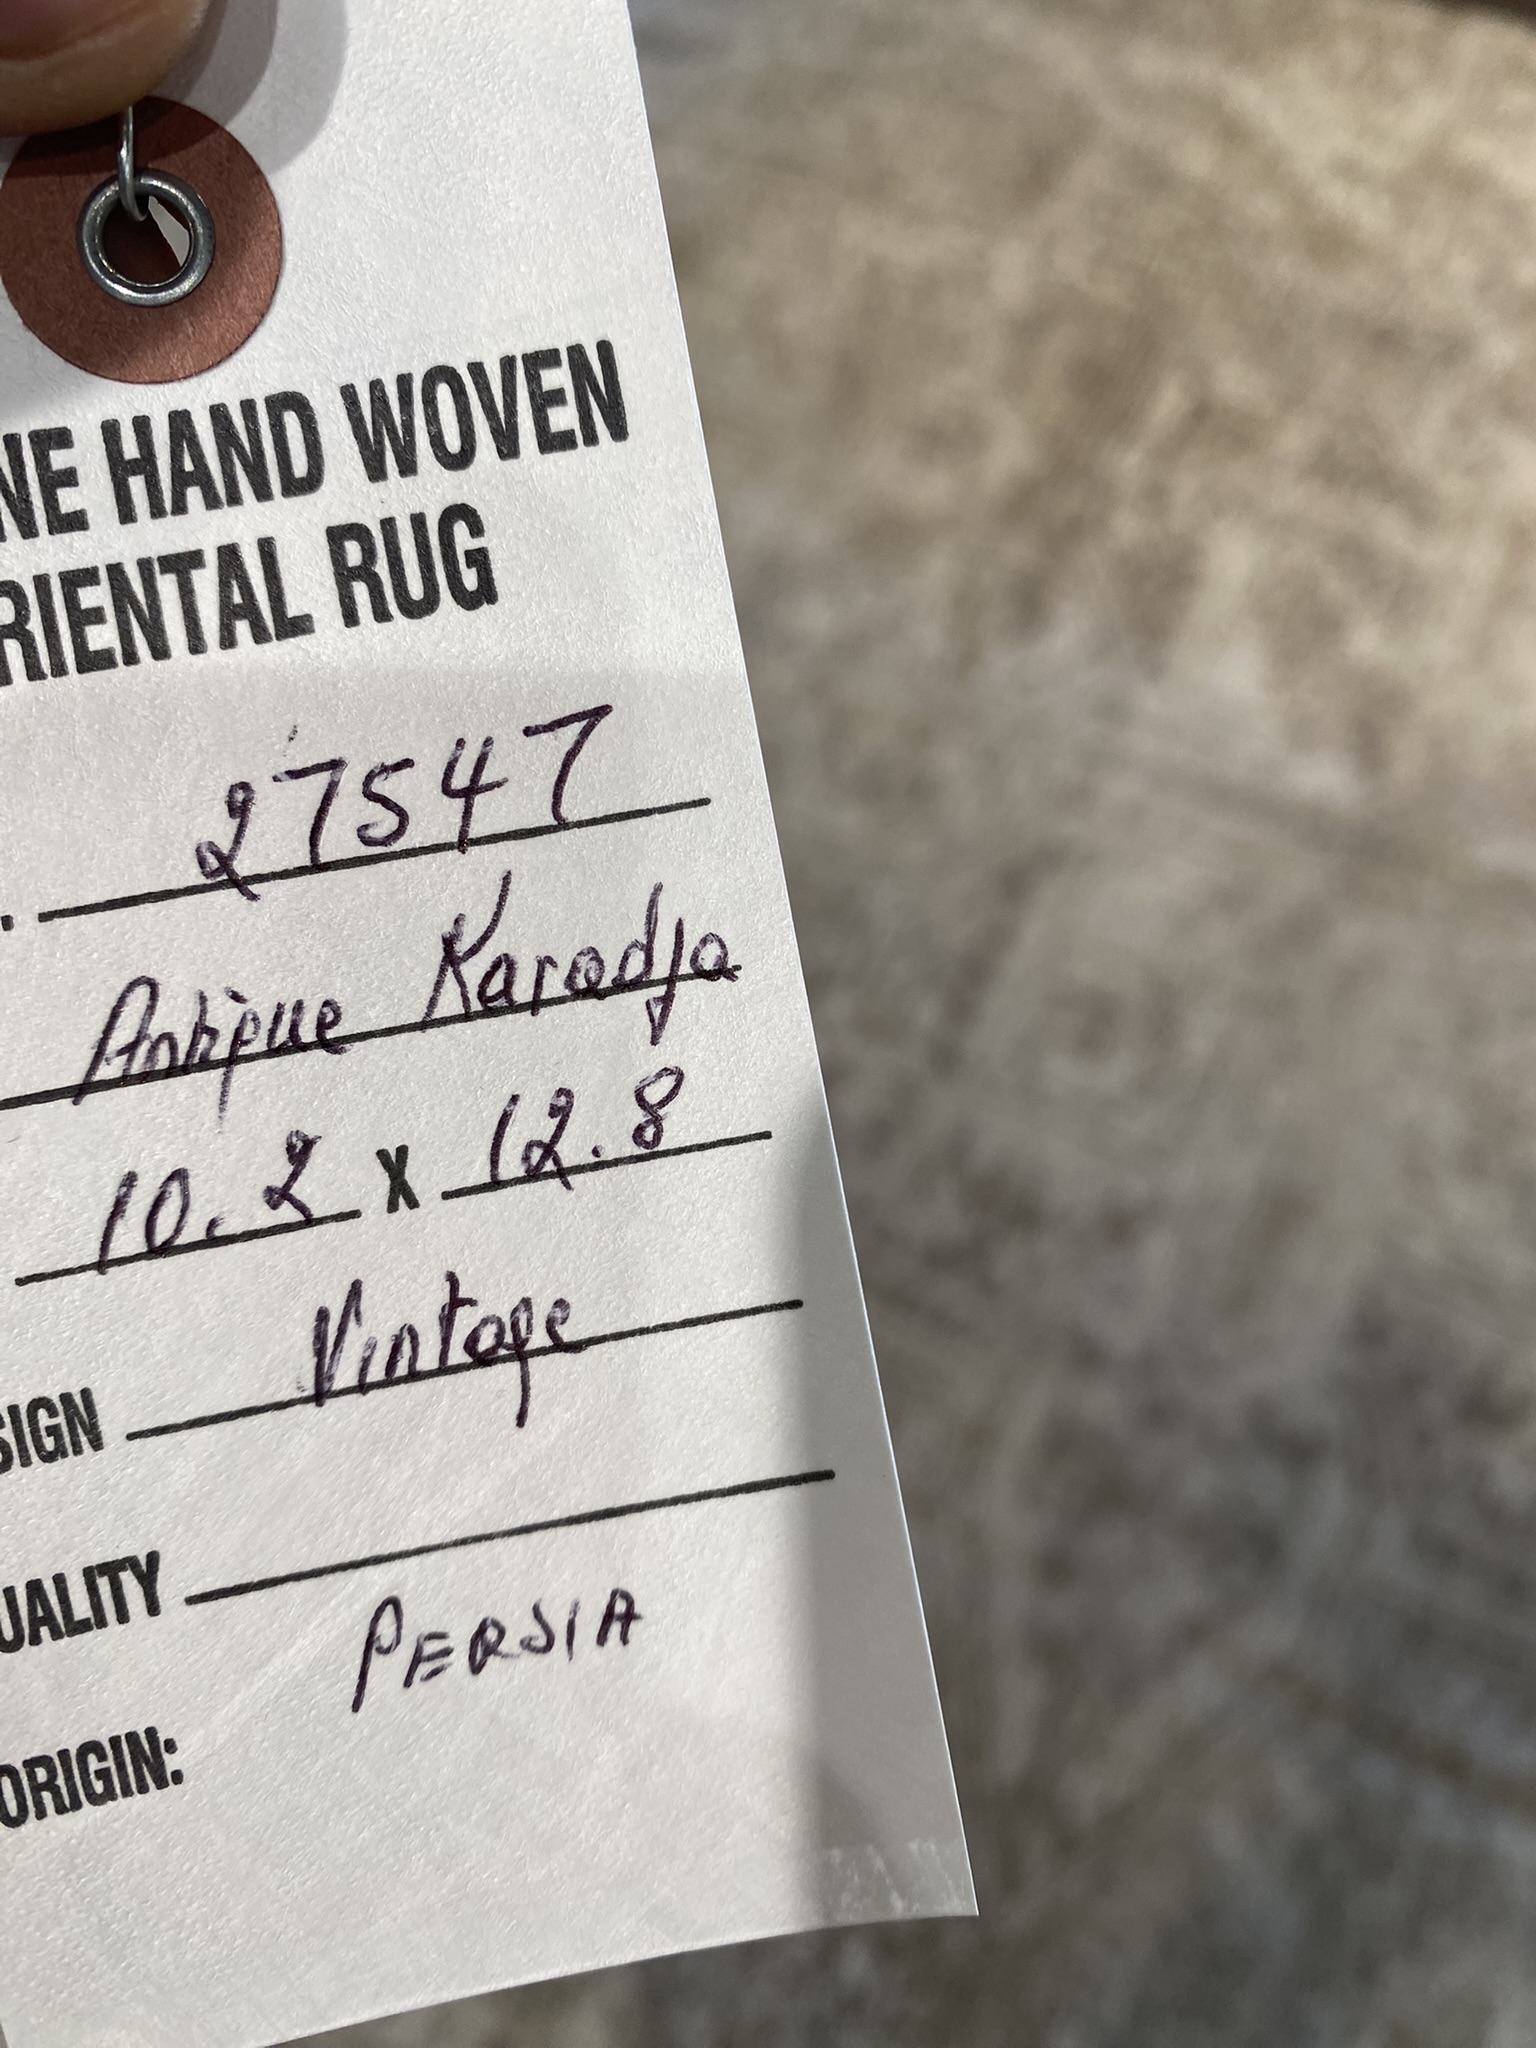 NE HAND WOVEN
RIENTAL RUG
. 27547
Antique Karadja
10.2 X 12.8
SIGN Vintage
UALITY
PERSIA
ORIGIN: